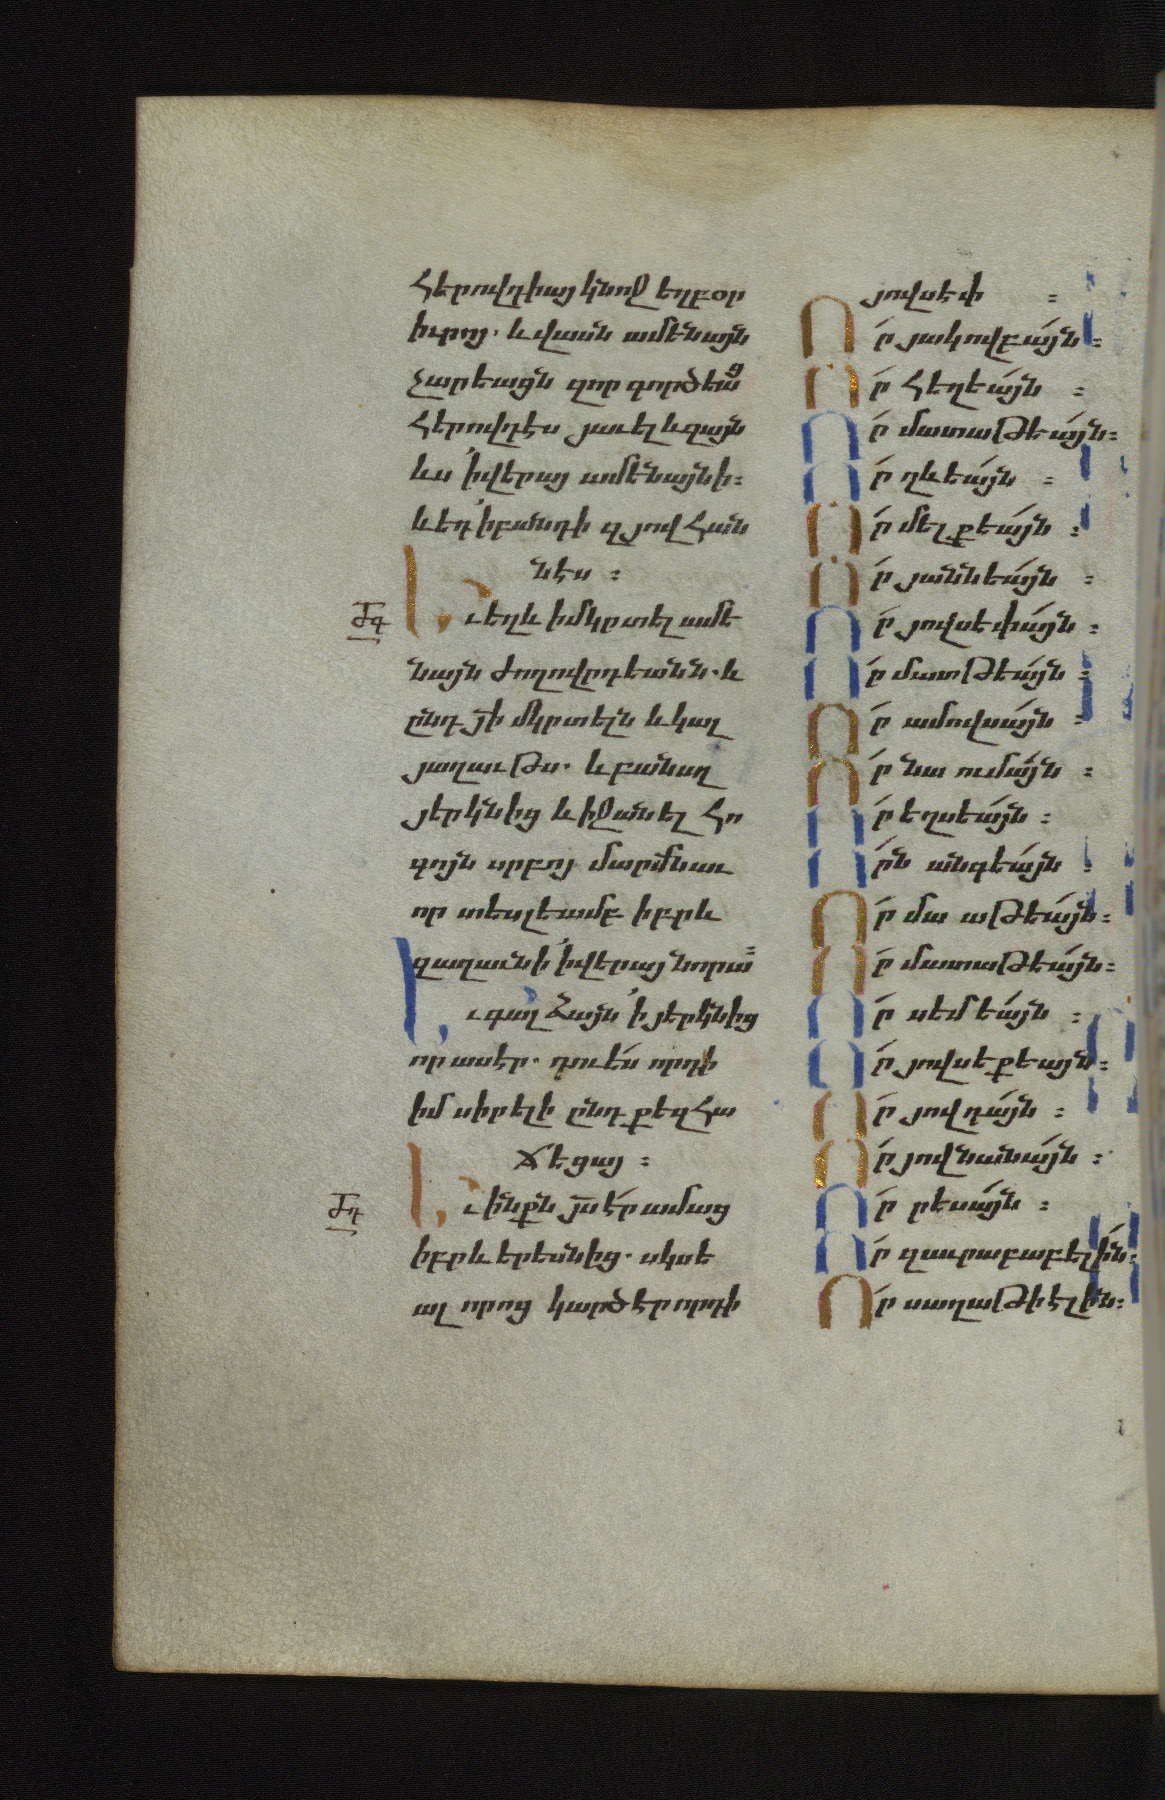 հերովդիայ կնոջ եղբօր
իւրոյ. և վասն ամենայն
չարեացն զոր գործեաց
հերովդէս յաւել և զայն
ևս ՛ի վերայ ամենայնի։
և եդ ՛ի բանդի զյովհան
նէս ։
ժգ
Եւ եղև ի մկրտել ամե
նայն ժողովրդեանն. և
ընդ յի մկրտելն և կալ
յաղաւթս. և բանալ
յերկնից և իջանել հո
գոյն սրբոյ մարմնաւ
որ տեսլեամբ իբրև
զաղաւնի ՛ի վերայ նորա։
Եւ գալ ձայն ՛ի յերկնից
որ ասէր. դու ես որդի
իմ սիրելի ընդ քեզ հա
ճեցայ ։
ժդ
Եւ ինքն յս էր ամաց
իբրև երեսնից. սկսե
ալ որոց կարծէր որդի
յովսեփ ։
Որ յակովբայն ։
Որ հեղեայն ։
Որ մատաթեայն։
Որ ղևեայն ։
Որ մելքեայն ։
Որ յաննեայն ։
Որ յովսեփայն ։
Որ մատթեայն ։
Որ ամովսայն ։
Որ նաումայն ։
Որ եղսեայն ։
Որն անգեայն ։
Որ մաաթեայն։
Որ մատաթեայն։
Որ սեմեայն ։
Որ յովսեքեայն։
Որ յովդայն ։
Որ յովնանայն ։
Որ րեսայն ։
Որ զաւրաբաբելին։
Որ սաղաթիէլին։